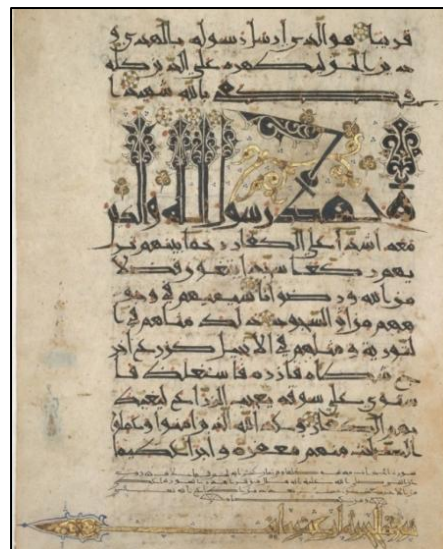 قريبا هو الذي ارسل رسوله بالهدى و
دين الحق ليظهره على الدين كله
وكفى بالله شهيدا
محمد رسول الله والذين
معه اشدا على الكفار رحما بينهم تر
يهم ركعا سجدا يبتغون فضلا
من الله ورضوانا سيميهم في وجو
ههم من اثر السجود ذلك مثلهم في ا
لتورية ومثلهم في الانجيل كزرع اخر
ج شطاه فازره فاستغلظ فا
ستوى على سوقه يعجب الزراع ليغيظ
بهم الكفار وعد الله الذين امنوا وعملوا
الصلحت منهم مغفرة واجرا عظيما